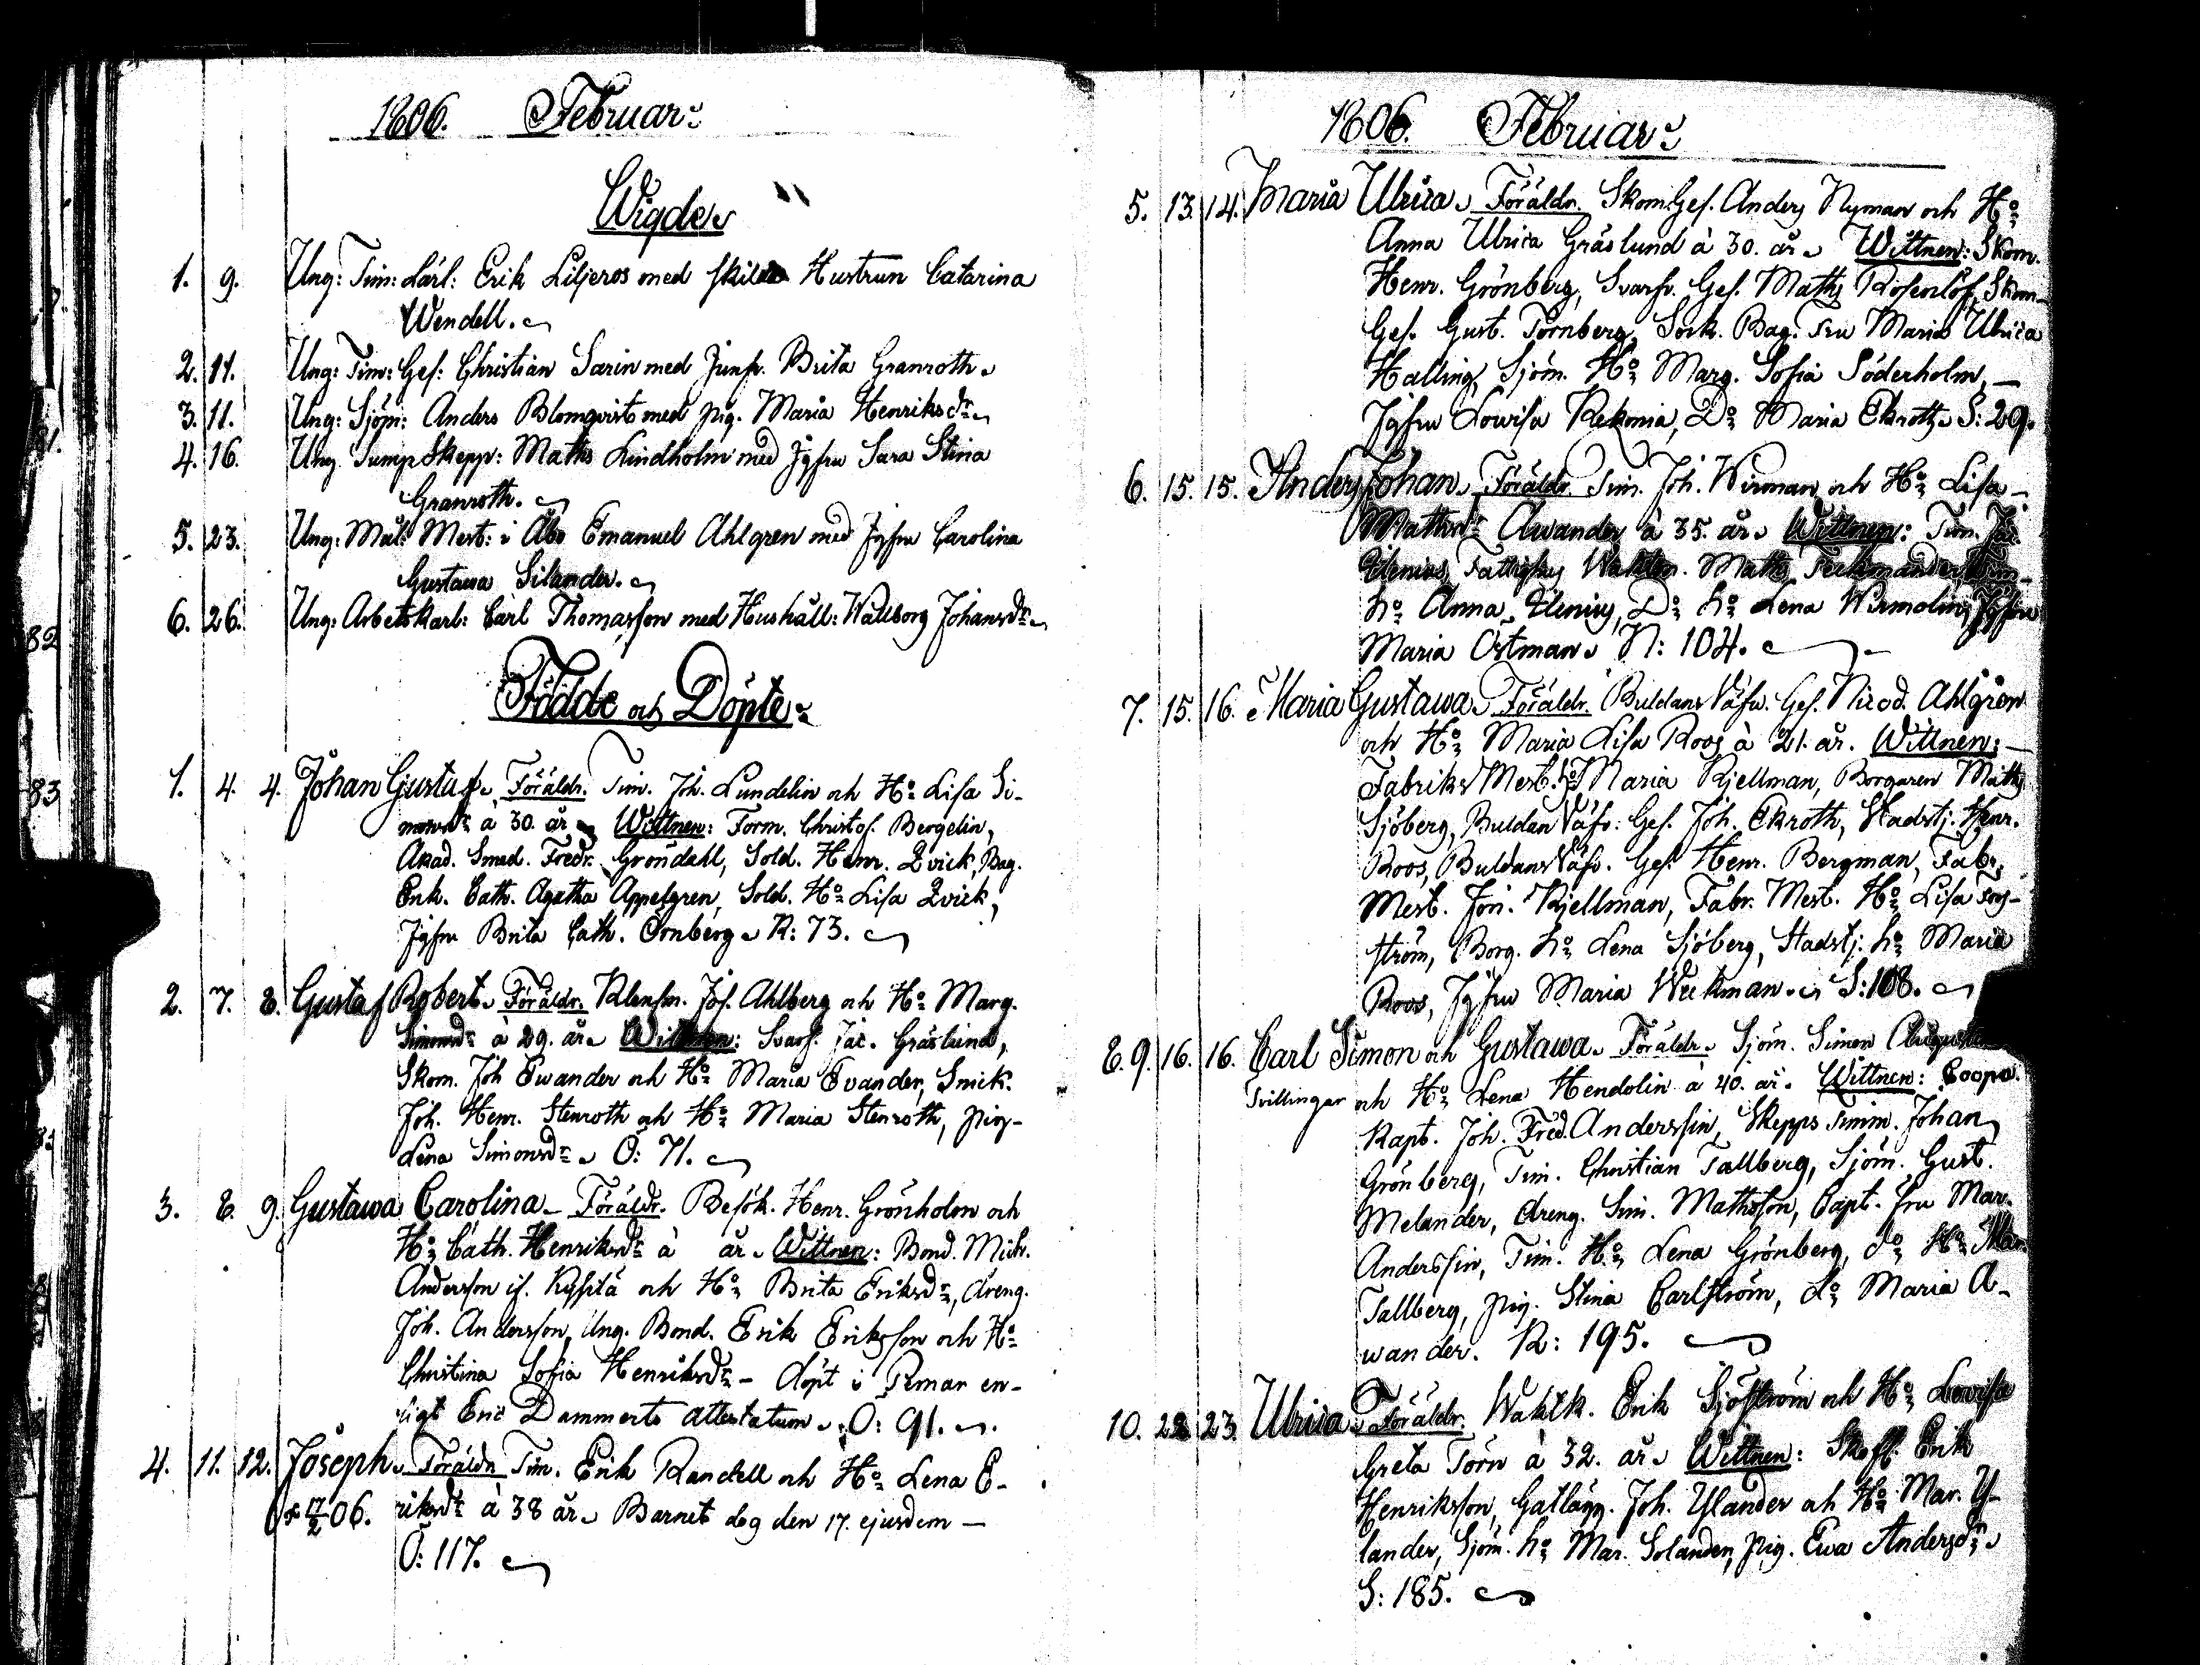 1806. Februar:
Wigde
1. 9. Ung: Tim: Karl: Erik Liljeros med skilda Hustrun Catarina
Wendell.
2. 11. Ung: Tim: Ges: Christian Sarin med Junfr. Brita Granroth
3. 11. Ung: Sjöm: Anders Blomqvist med pig. Maria Henriksdr
4. 16. Ung. Sump Skepp: Maths Lindholm med Jgfru Sara Stina
Granroth.
5. 23. Ung: Mål: Mest: i Åbo Emanuel Ahlgren med Jgfru Carolina
Gustawa Silander.
6. 26. Ung: Arbetskarl: Carl Thomasson med Hushåll: Wallborg Johansdr
Födde och Döpte
1. 4. 4. Johan Gustaf Föräldr. Tim. Joh. Lundelin och Ho Lisa Si-
monsdr à 30. år Wittnen: Form. Christof. Bergelin,
Akad. Smed. Fredr. Gröndahl, Sold. Henr. Qvick, Bag.
Enk. Cath. Agatha Appelgren, Sold. Ho Lisa Qvick,
Jgfru Brita Cath. Örnberg R: 73.
2. 7. 8. Gustaf Robert Föräldr. Klensm. Jos. Ahlberg och Ho Marg.
Simonsdr à 29. år Wittnen: Svarf. Jac. Gräslund,
Skom. Joh Ewander och Ho Maria Evander, Snick.
Joh. Henr. Stenroth och Ho Maria Stenroth, pig-
Lena Simonsdr Ö: 71.
3. 8. 9. Gustawa Carolina Föräldr. Besök. Henr. Grönholm och
Ho Cath. Henriksdr à år Wittnen: Bond. Mich.
Andersson if. och Ho Brita Eriksdr, dreng.
Joh. Andersson, Ung. Bond. Erik Eriksson och Ho
Christina Sofia Henriksdr - döpt i Pemar en-
ligt Eric Dammerts attestatum Ö: 91.
4. 11. 12. Joseph Föräldr Tim. Erik Randell och Ho Lena E-
17/2 06. riksdr à 38 år Barnet dog den 17. ejusdem -
Ö: 117.
1806. Februar:
5. 13. 14. Maria Ulrica Föräldr. Skom. Ges. Anders Nyman och Ho
Anna Ulrica Gräslund à 30. år Wittnen: Skom.
Henr. Grönberg, Svarfv. Ges. Maths Rosenlöf, Skom-
Ges. Gust. Törnberg, Sock. Bag. Fru Maria Ulrica
Halling, Sjöm. Ho Marg. Sofia Söderholm, -
Jgfru Lowisa Rekonia, Do Maria Ekroth S: 29.
6. 15. 15. Anders Johan Föräldr. Tim. Joh. Wirman och Ho Lisa -
Mathsdr Awander à 35. år Wittnen: Tim. Jac.
Elenius, Fattighus Wakten. Maths
ho Anna Elenius, Do ho Lena Jgfru
Maria Östman N: 104.
7. 15. 16. Maria Gustawa Föräldr. Buldans Väfv. Ges. Nicod. Ahlgren
och Ho Maria Lisa Roos à 21. år. Wittnen: -
Fabriks Mest. ho Maria Kjellman, Borgaren Maths
Sjöberg, Buldan Väfv: Ges. Joh. Ekroth, Stadstj. Henr.
Roos, Buldans Väfv. Ges. Henr. Bergman, Fabr.
Mest. Jon. Kjellman, Fabr. Mest. Ho Lisa Fors-
ström, Borg. ho Lena Sjöberg, Stadstj: ho Maria
Roos, Jgfru Maria Weckman. S: 108.
8. 9. 16. 16. Carl Simon och Gustawa Föräldr Sjöm. Simon
Tvillingar och Ho Lena Hendolin à 40. år. Wittnen: Coopv.
Kapt. Joh. Fred. Anderssin, Skepps Timm. Johan
Grönberg, Tim. Christian Tallberg, Sjöm. Gust.
Melander, dreng. Sim. Mathsson, Capt. fru Mar.
Anderssin, Tim. Ho Lena Grönberg, do Ho Mar.
Tallberg, pig. Stina Carlström, do Maria A-
wander. R: 195.
10. 22 23. Ulrica Föräldr. Waktk. Erik Sjöström och Ho Lowisa
Greta Törn à 32. år Wittnen: Erik
Henriksson, Joh. Ylander och Ho Mar. Y-
lander, Sjöm. ho Mar. Solander, pig. Ewa Andersdr
S: 185.